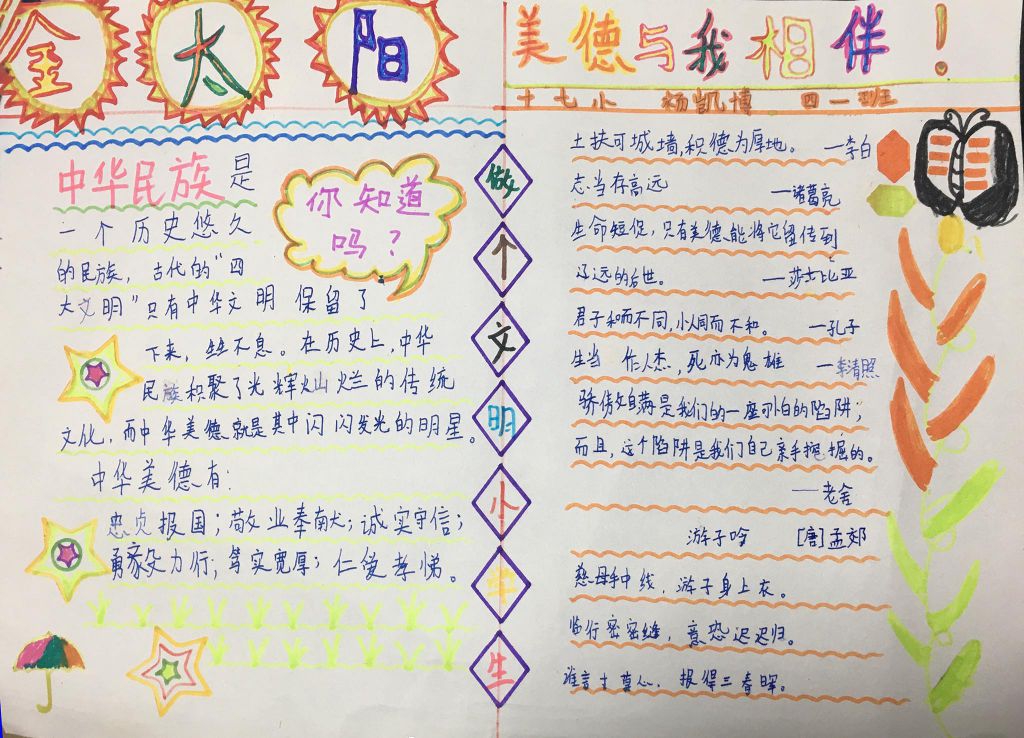 金太阳
美德与我相伴!
十七小 杨凯博 四一班
中华民族是
一个历史悠久
的民族,古代的“四
大文明”只有中华文明保留了
下来,丝丝不息。在历史上,中华
民族积聚了光辉灿烂的传统
文化,而中华美德就是其中闪闪发光的明星。
中华美德有:
忠贞报国;敬业奉献;诚实守信;
勇毅力行;笃实宽厚;仁爱孝悌。
你知道
吗?
做
个
文
明
小
学
生
土扶可城墙,积德为厚地。 —李白
志当存高远 —诸葛亮
生命短促,只有美德能将它留传到
辽远的后世。 —莎士比亚
君子和而不同,小人同而不和。 —孔子
生当作人杰,死亦为鬼雄 —李清照
骄傲自满是我们的一座可怕的陷阱;
而且,这个陷阱是我们自己亲手挖掘的。
—老舍
游子吟 [唐]孟郊
慈母手中线,游子身上衣。
临行密密缝,意恐迟迟归。
谁言寸草心,报得三春晖。